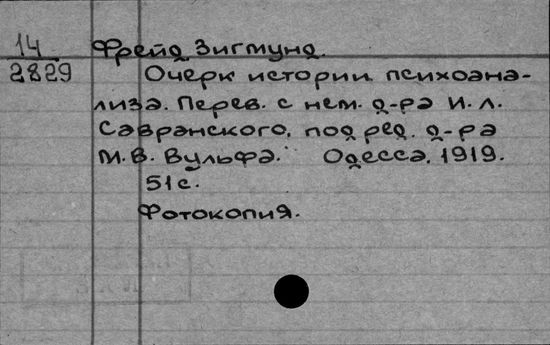 14 Фрейд Зигмунд.
2829 Очерк истории психоана-
лиза. Перев. с нем. д-ра И. Л.
Савранского, под ред. д-ра
М. В. Вульфа. Одесса, 1919.
51 с.
Фотокопия.